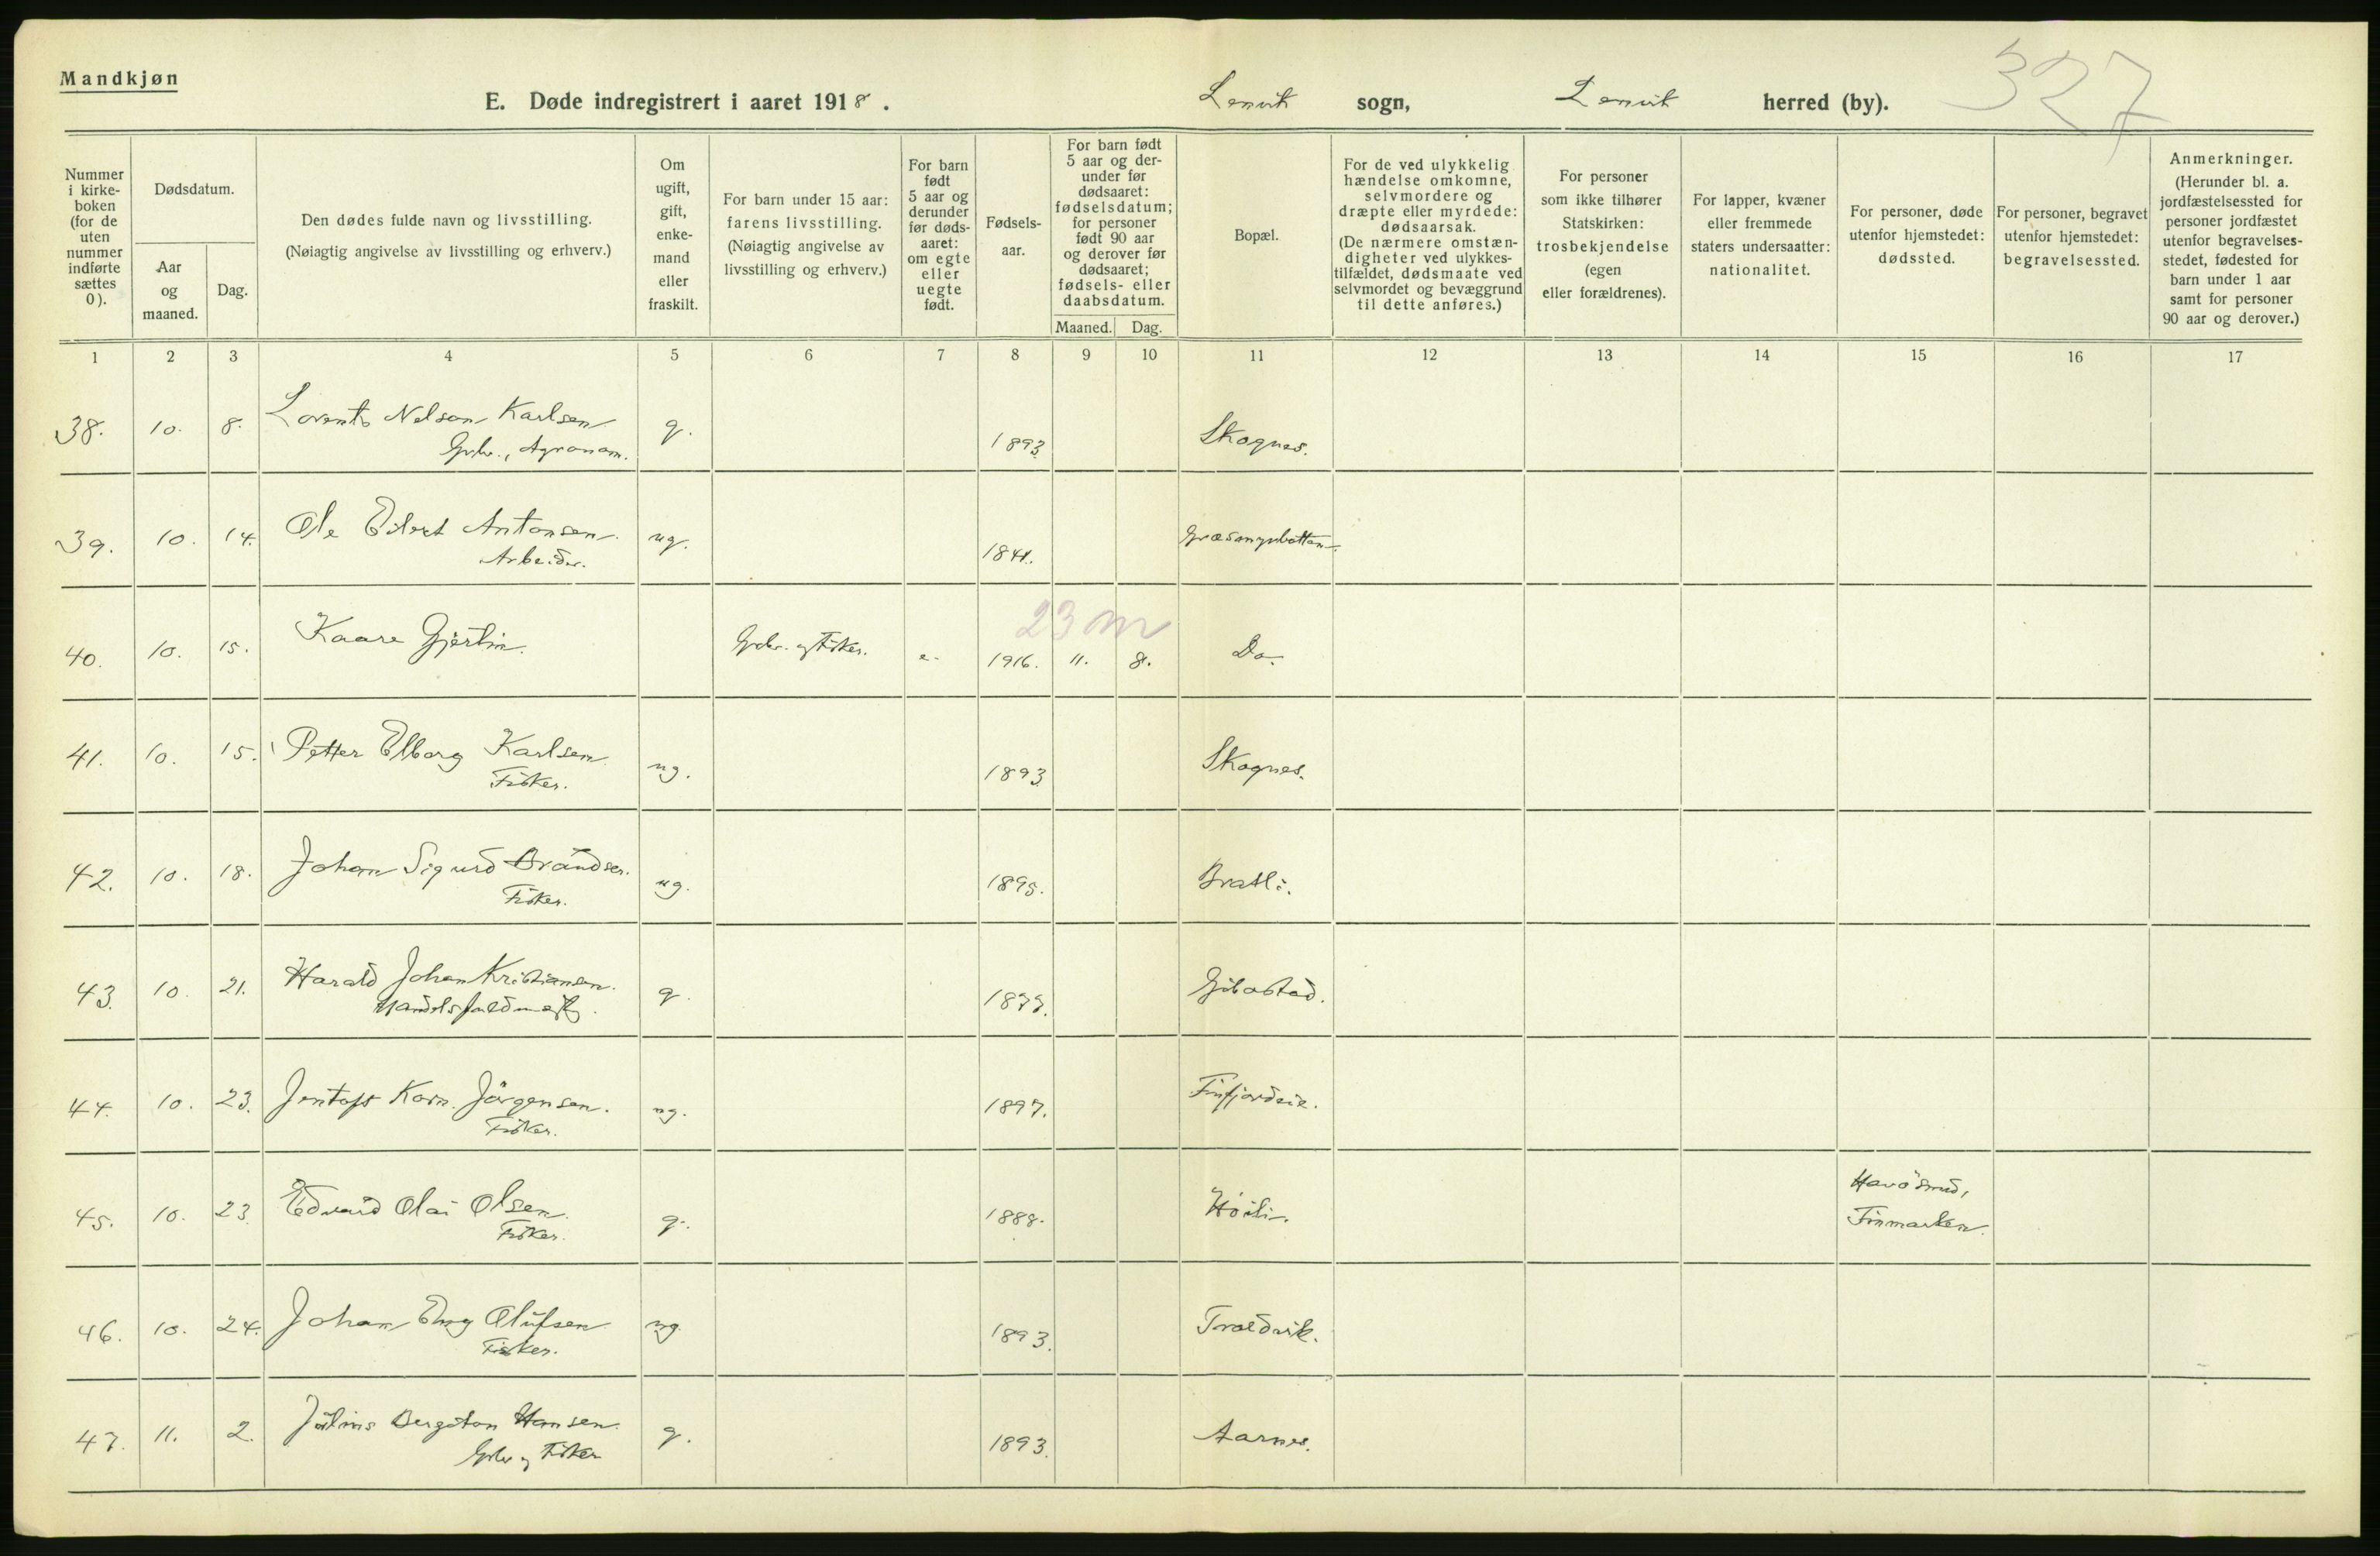 Mandkjøn
E. Døde indregistrert i aaret 1918. Lenvik sogn, Lenvik herred (by). 327
Nummer i kirke- boken (for de uten nummer indførte sættes 0).
Dødsdatum.
Aar og maaned.
Dag.
Den dødes fulde navn og livsstilling.
(Nøiagtig angivelse av livsstilling og erhverv.)
Om ugift, gift, enke- mand eller fraskilt.
For barn under 15 aar: farens livsstilling. (Nøiagtig angivelse av livsstilling og erhverv.)
For barn født 5 aar og derunder før døds- aaret: om egte eller uegte født.
Fødsels- aar.
For barn født 5 aar og der- under før dødsaaret: fødselsdatum; for personer født 90 aar og derover før dødsaaret; fødsels- eller daabsdatum.
Maaned. Dag.
Bopæl.
For de ved ulykkelig hændelse omkomne, selvmordere og dræpte eller myrdede: dødsaarsak. (De nærmere omstæn- digheter ved ulykkes- tilfældet, dødsmaate ved selvmordet og bevæggrund til dette anføres.)
For personer som ikke tilhører Statskirken: trosbekjendelse (egen eller forældrenes).
For lapper, kvæner eller fremmede staters undersaatter: nationalitet.
For personer, døde utenfor hjemstedet: dødssted.
For personer, begravet utenfor hjemstedet: begravelsessted.
Anmerkninger. (Herunder bl. a. jordfæstelsessted for personer jordfæstet utenfor begravelses- stedet, fødested for barn under 1 aar samt for personer 90 aar og derover.)
1 2 3 4 5 6 7 8 9 10 11 12 13 14 15 16 17
38. 10. 8. Lorents Nelson Karlsen g. 1893. Skognes.
Gbr., Agronom.
39. 10. 14. Ole Eilert Antonsen. ug. 1841.
Arbeider.
23 m
40. 10. 15. Kaare Gjertin. Gbr. og Fisker. e. 1916. 11. 8. Do.
41. 10. 15. Petter Elborg Karlsen ug. 1893. Skognes.
Fisker.
42. 10. 18. Johan Sigurd Brandser. ug. 1895. Bratli.
Fisker.
43. 10. 21. Harald Johan Kristiansen. g. Gibostad.
Handelsfuldmægtig.
44. 10. 23. Jentoft Korn. Jörgensen. ug. 1897. Finfjordeie.
Fisker.
45. 10. 23. Edvard Olai Olsen. g. 1888. Höili. Havösund, Finmarken.
Fisker.
46. 10. 24. Johan Olufsen ug. 1893. Troldvik.
Fisker.
47. 11. 2. Julius Bergeton Hansen. g. 1893. Aarnes.
Gbr og Fisker